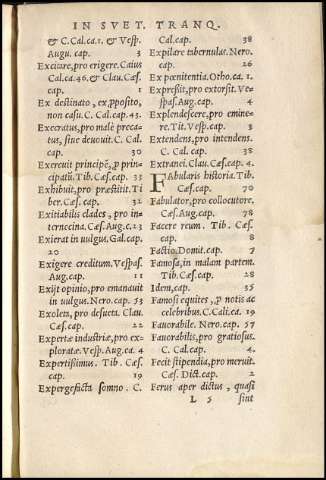 IN SVET. TRANQ.
& C. Cal. ca. 1. & Vesp.
Augu. cap. 3
Excitare, pro erigere. Caius
Cal. ca. 46. & Clau. Cæs.
cap. 1
Ex destinato, ex, pposito,
non casu. C. Cal. cap. 43.
Execratus, pro malè preca-
tus, siue deuouit. C. Cal.
cap. 30
Exercuit principē, p prin-
cipatū. Tib. Cæs. cap. 33
Exhibuit, pro præstitit. Ti
ber. Cæs. cap. 32
Exitiabilis clades, pro in-
ternecina. Cæs. Aug. c. 23
Exierat in uulgus. Gal. cap.
20
Exigere creditum. Vespas.
Aug. cap. 11
Exijt opinio, pro emanauit
in uulgus. Nero. cap. 53
Exoleta, pro desueta. Clau.
Cæs. cap. 22
Expertæ industriæ, pro ex-
ploratæ. Vesp. Aug. ca. 4
Expertissimus. Tib. Cæs.
cap. 19
Expergefacta somno. C.
Cal. cap. 38
Expilare tabernulas. Nero.
cap. 26
Ex pœnitentia. Otho. ca. 1.
Expressit, pro extorsit. Ve-
spas. Aug. cap. 4
Explendescere, pro emine-
re. Tit. Vesp. cap. 3
Extendens, pro intendens.
C. Cal. cap. 38
Extranei. Clau. Cæs. cap. 4.
FAbularis historia. Tib.
Cæs. cap. 70
Fabulator, pro collocutore.
Cæs. Aug. cap. 78
Facere reum. Tib. Cæs.
cap. 8
Factio. Domit. cap. 7
Famosa, in malam partem.
Tib. Cæs. cap. 28
Idem, cap. 35
Famosi equites, p notis ac
celebribus. C. Cali. ca. 19
Fauorabile. Nero. cap. 57
Fauorabilis, pro gratiosus.
C. Cal. cap. 4.
Fecit stipendia, pro meruit.
Cæs. Dict. cap. 2
Ferus aper dictus, quasi
L 5 sint